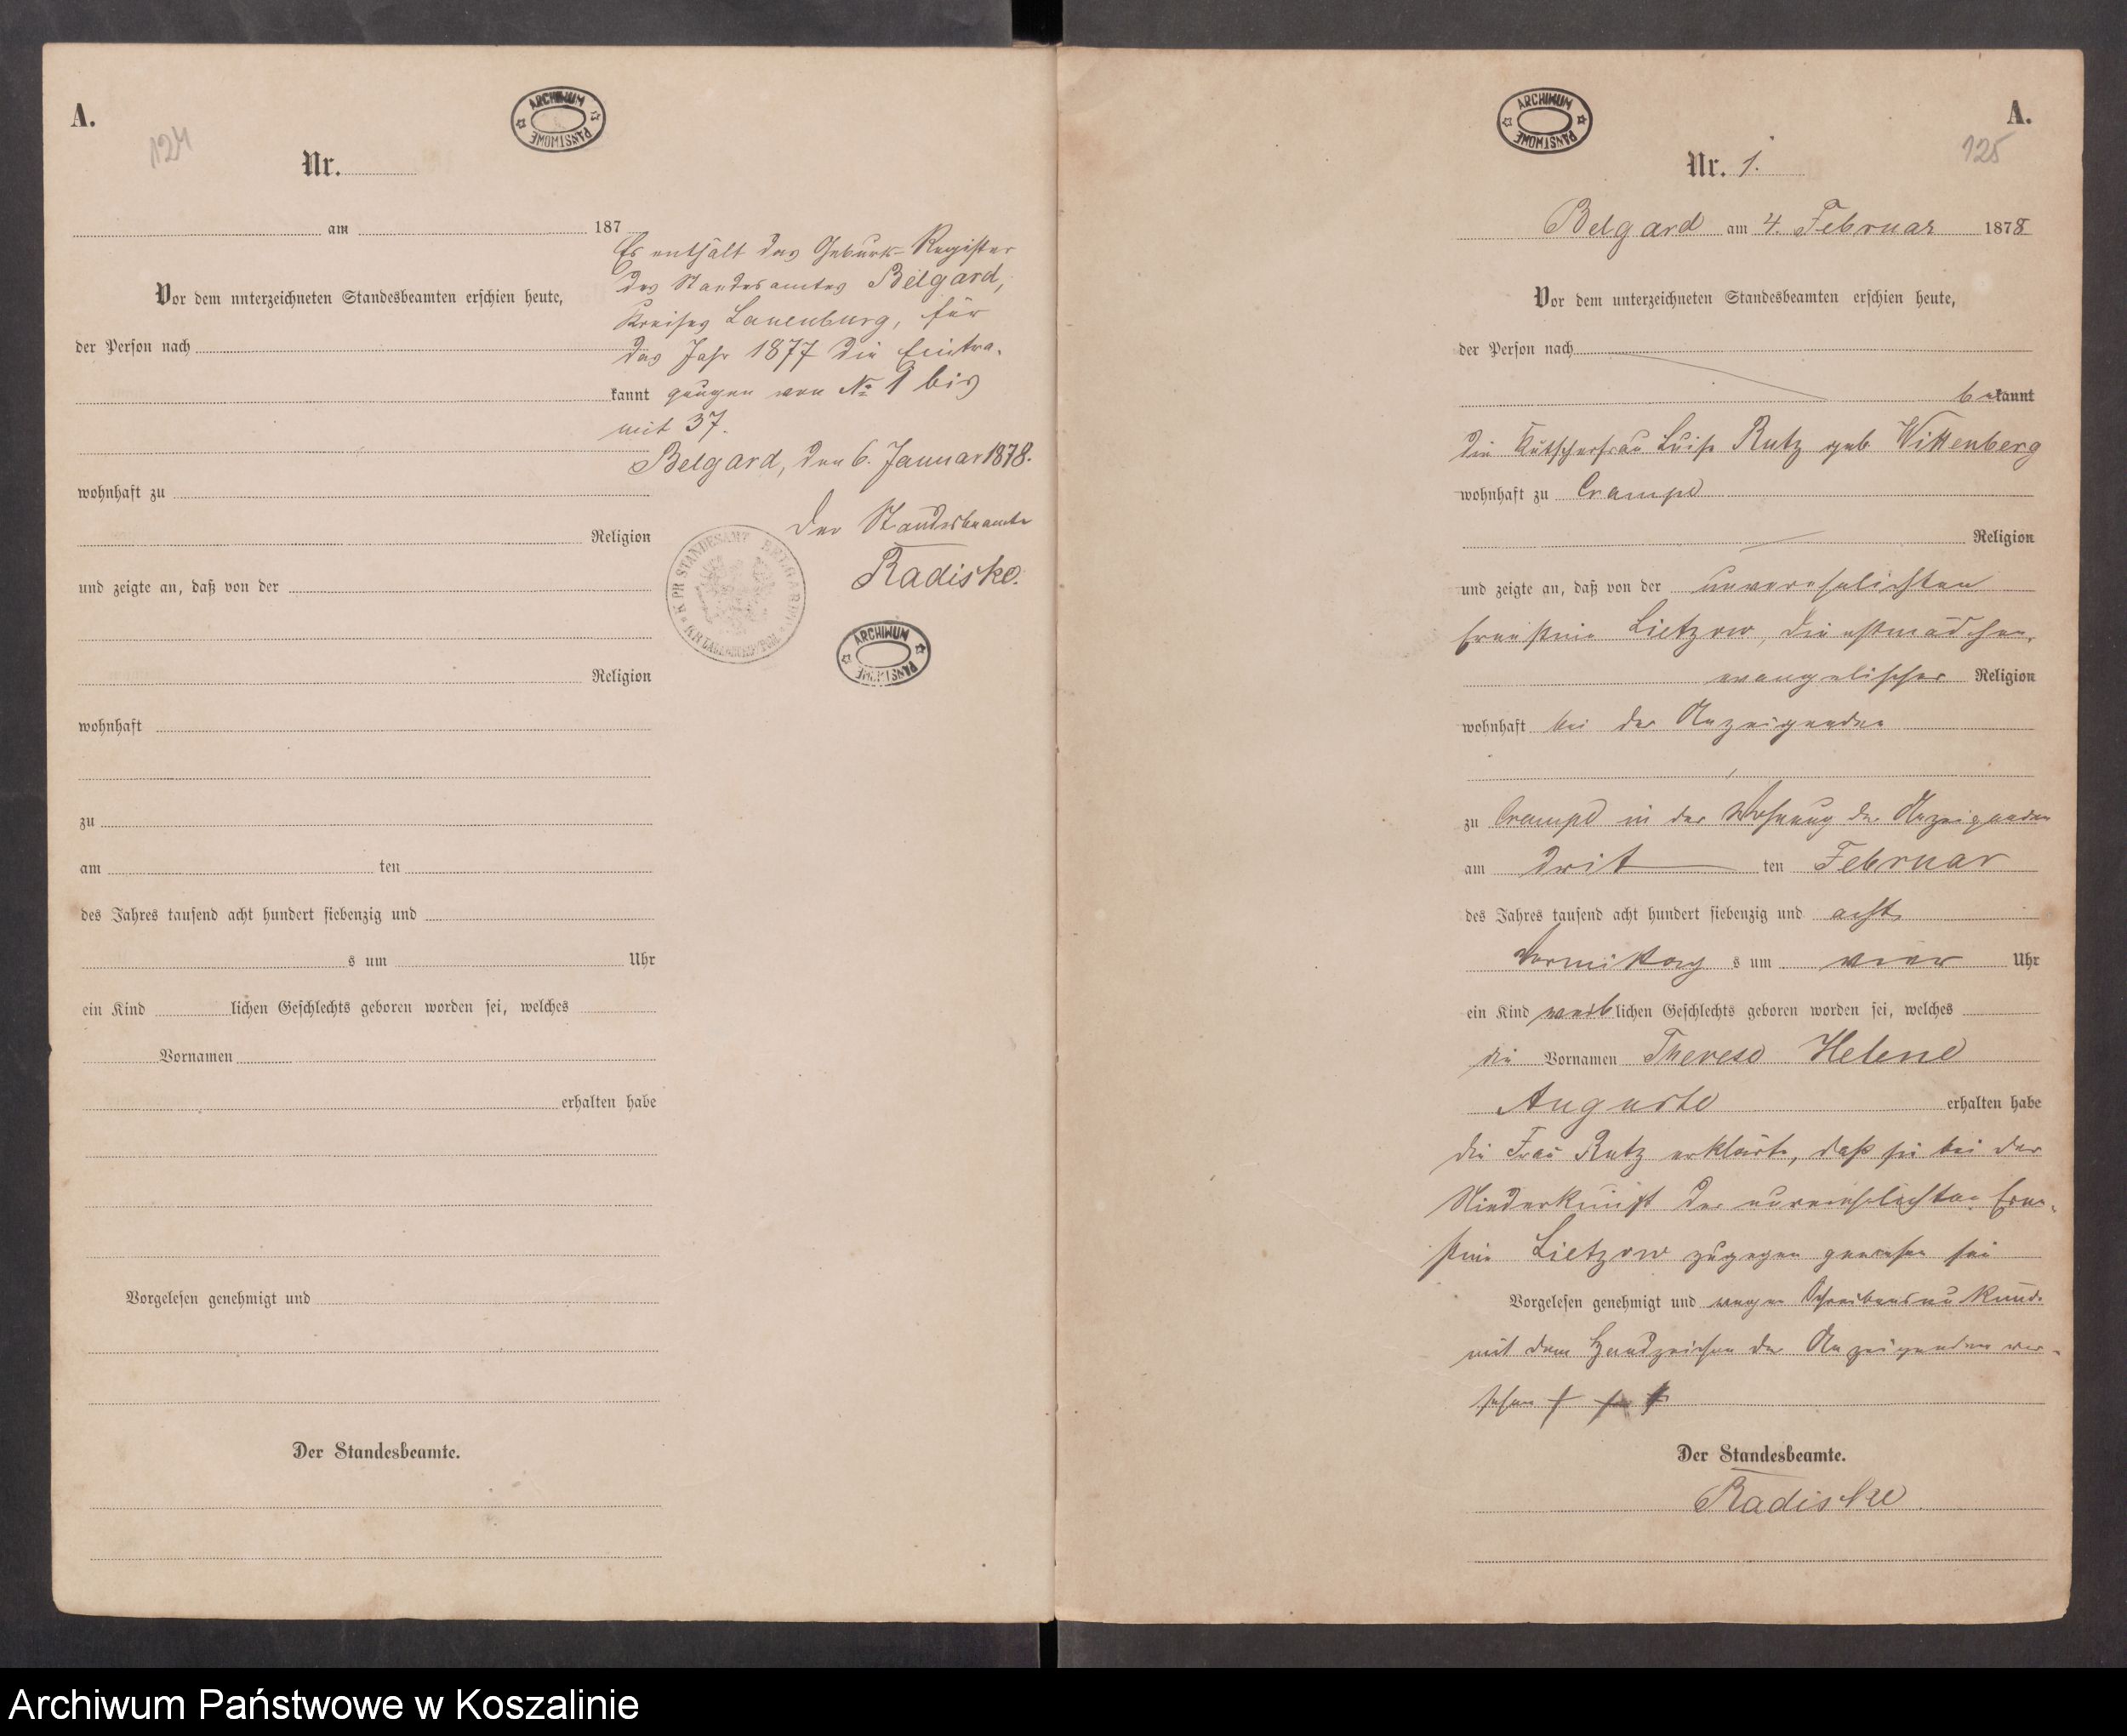 A.
124
ARCHIWUM PAŃSTWOWE
Nr.
am 187
Es enthält das Geburts-Register
des Standesamtes Belgard,
Vor dem unterzeichneten Standesbeamten erschien heute,
Kreises Lauenburg, für
der Person nach
das Jahr 1877 die Eintra-
kannt gungen von No 1 bis
mit 37.
Belgard, den 6. Januar 1878.
wohnhaft zu
Der Standesbeamte
Religion
Radiske.
K. PR. STANDESAMT BELGARD
und zeigte an, daß von der
ARCHIWUM PAŃSTWOWE
Religion
wohnhaft
zu
am ten
des Jahres tausend acht hundert siebenzig und
s um Uhr
ein Kind lichen Geschlechts geboren worden sei, welches
Vornamen
erhalten habe
Vorgelesen genehmigt und
Der Standesbeamte.
A.
125
ARCHIWUM PAŃSTWOWE
Nr. 1.
Belgard am 4. Februar 1878
Vor dem unterzeichneten Standesbeamten erschien heute,
der Person nach
bekannt
die Kutscherfrau Luise Rutz geb. Wittenberg
wohnhaft zu Crampe
Religion
und zeigte an, daß von der unverehelichten
Ernstine Lietzow, Dienstmädchen,
evangelischer Religion
wohnhaft bei der Anzeigenden
zu Crampe in der Wohnung der Anzeigenden
am drit ten Februar
des Jahres tausend acht hundert siebenzig und acht
Vormittag s um vier Uhr
ein Kind weiblichen Geschlechts geboren worden sei, welches
die Vornamen Therese Helene
Auguste erhalten habe
die Frau Rutz erklärte, daß sie bei der
Niederkunft der unverehelichten Ern-
stine Lietzow zugegen gewesen sei
Vorgelesen genehmigt und wegen Schreibensunkunde
mit dem Handzeichen der Anzeigenden ver-
sehen † † †
Der Standesbeamte.
Radiske
Archiwum Państwowe w Koszalinie